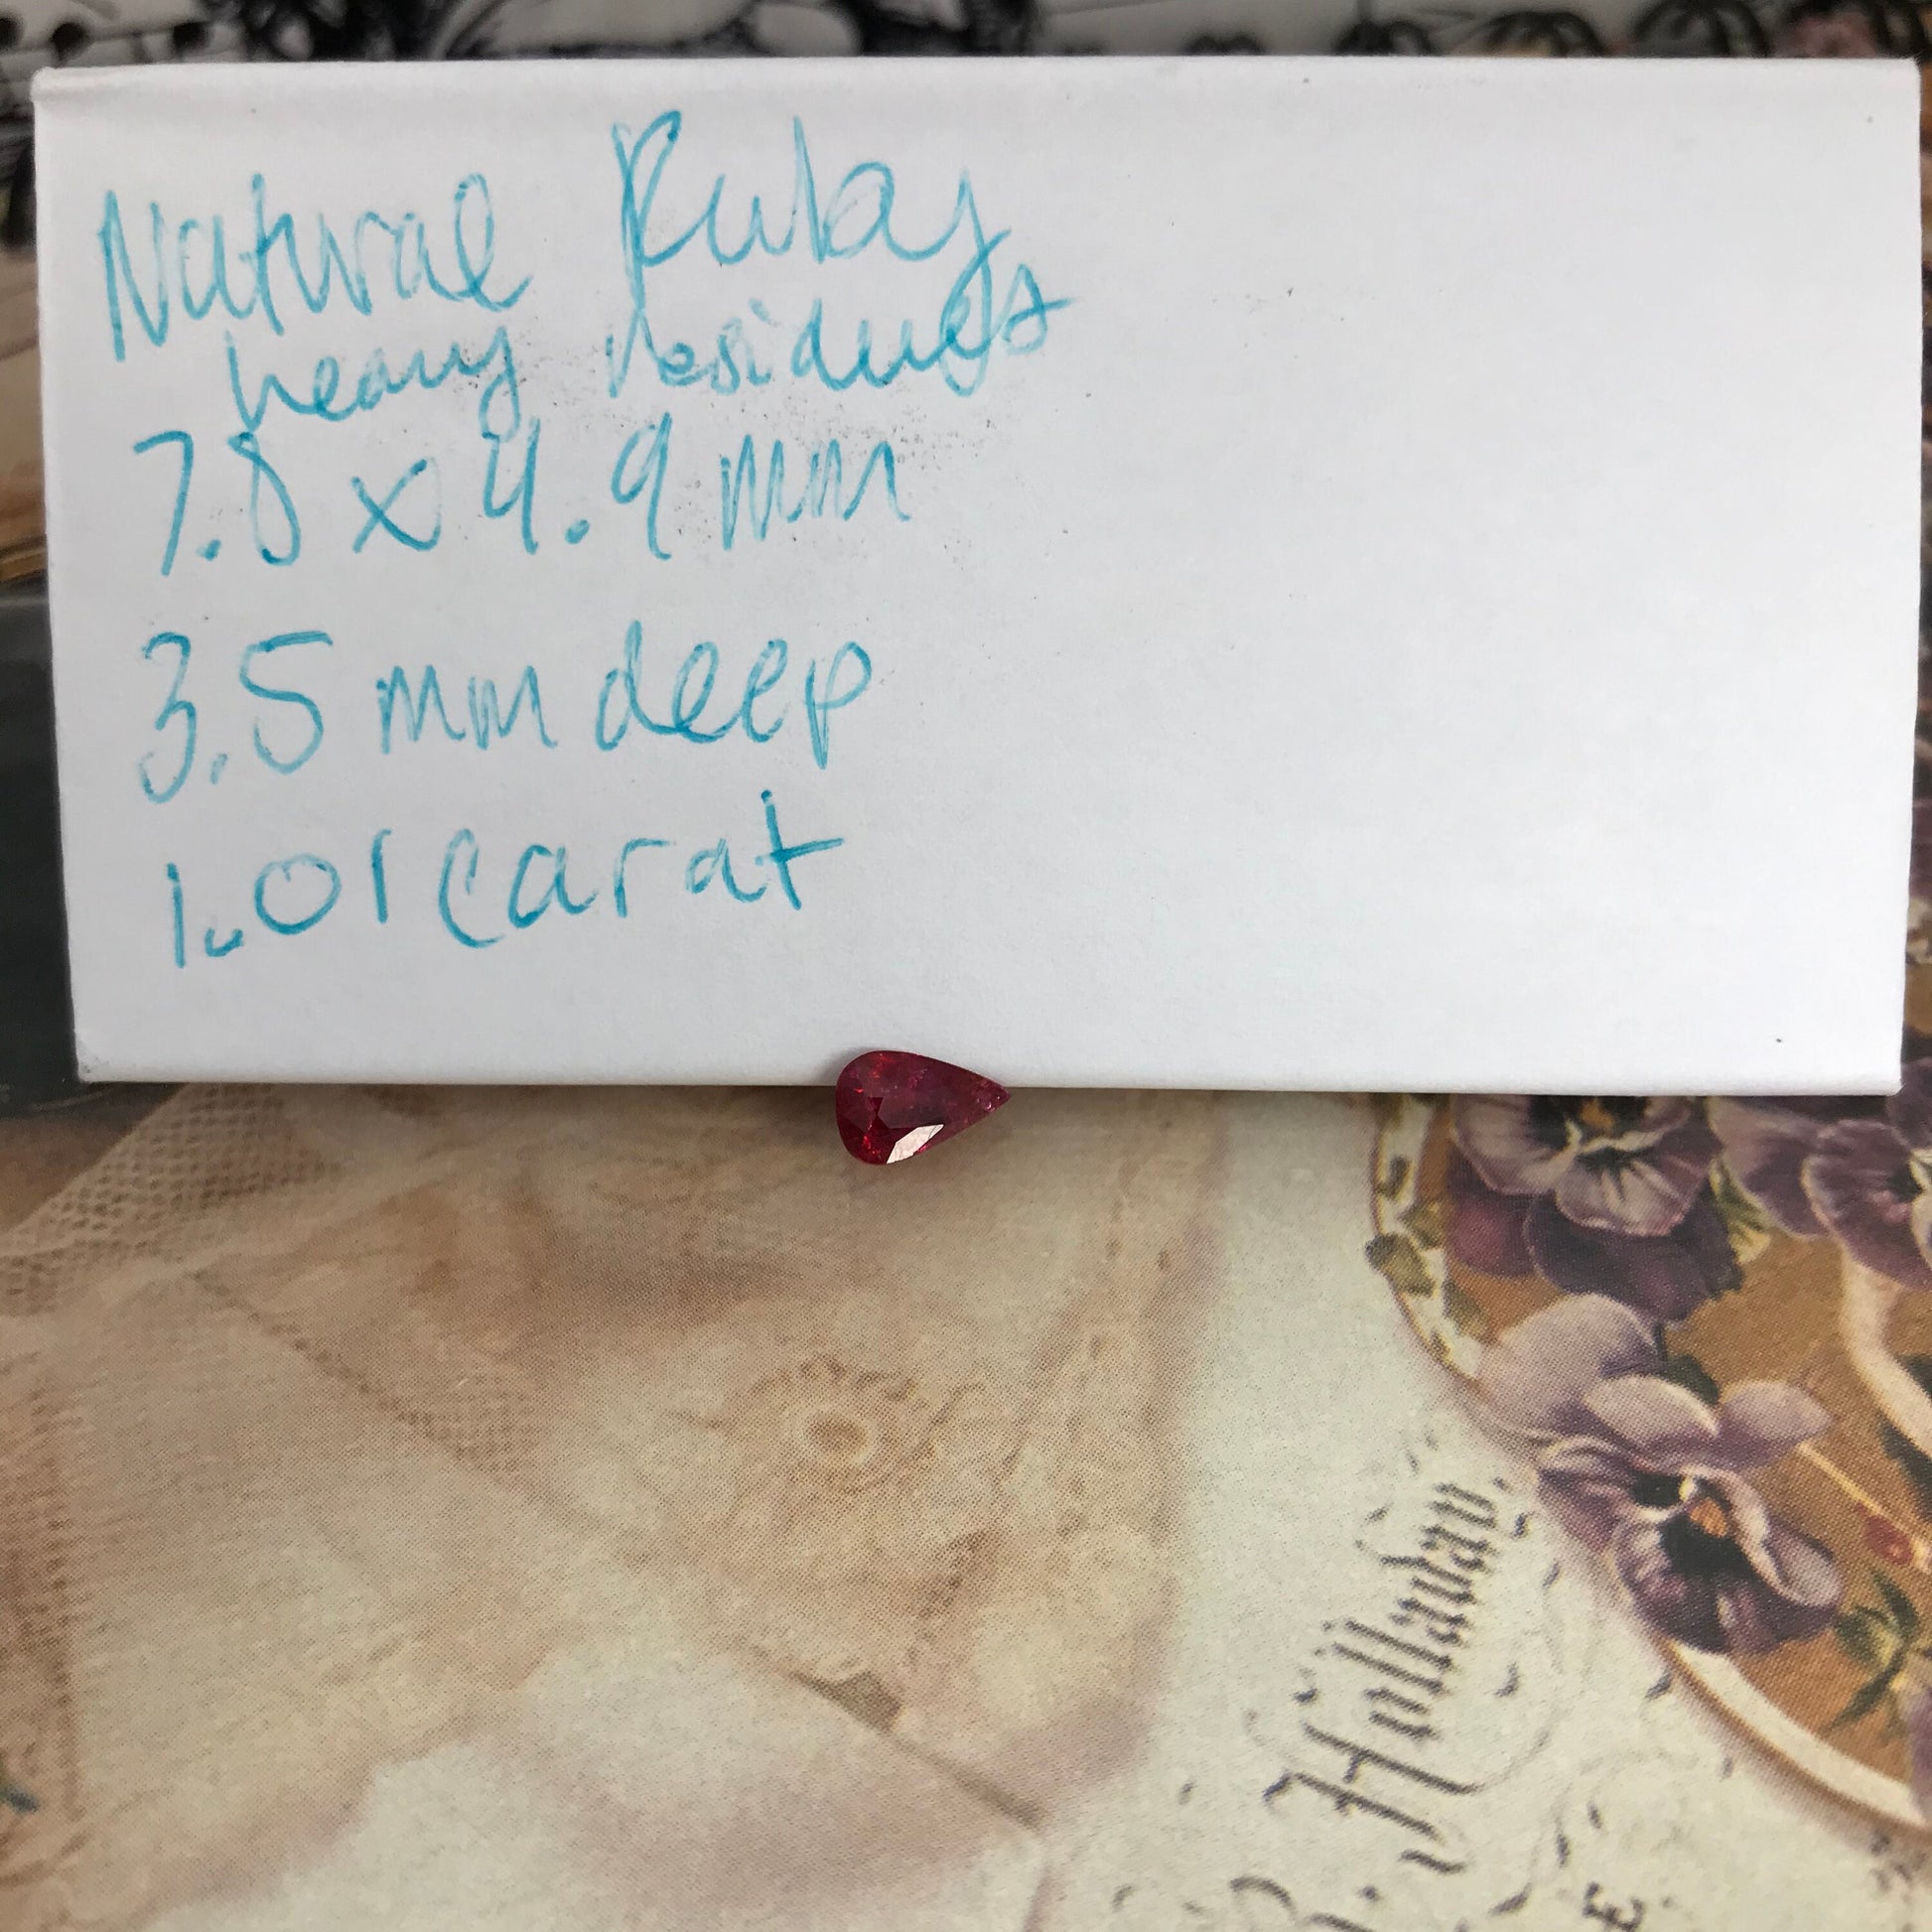 Natural Ruby
heavy residues
7.8 x 4.9 mm
3.5 mm deep
1.01 carat
Holladay,